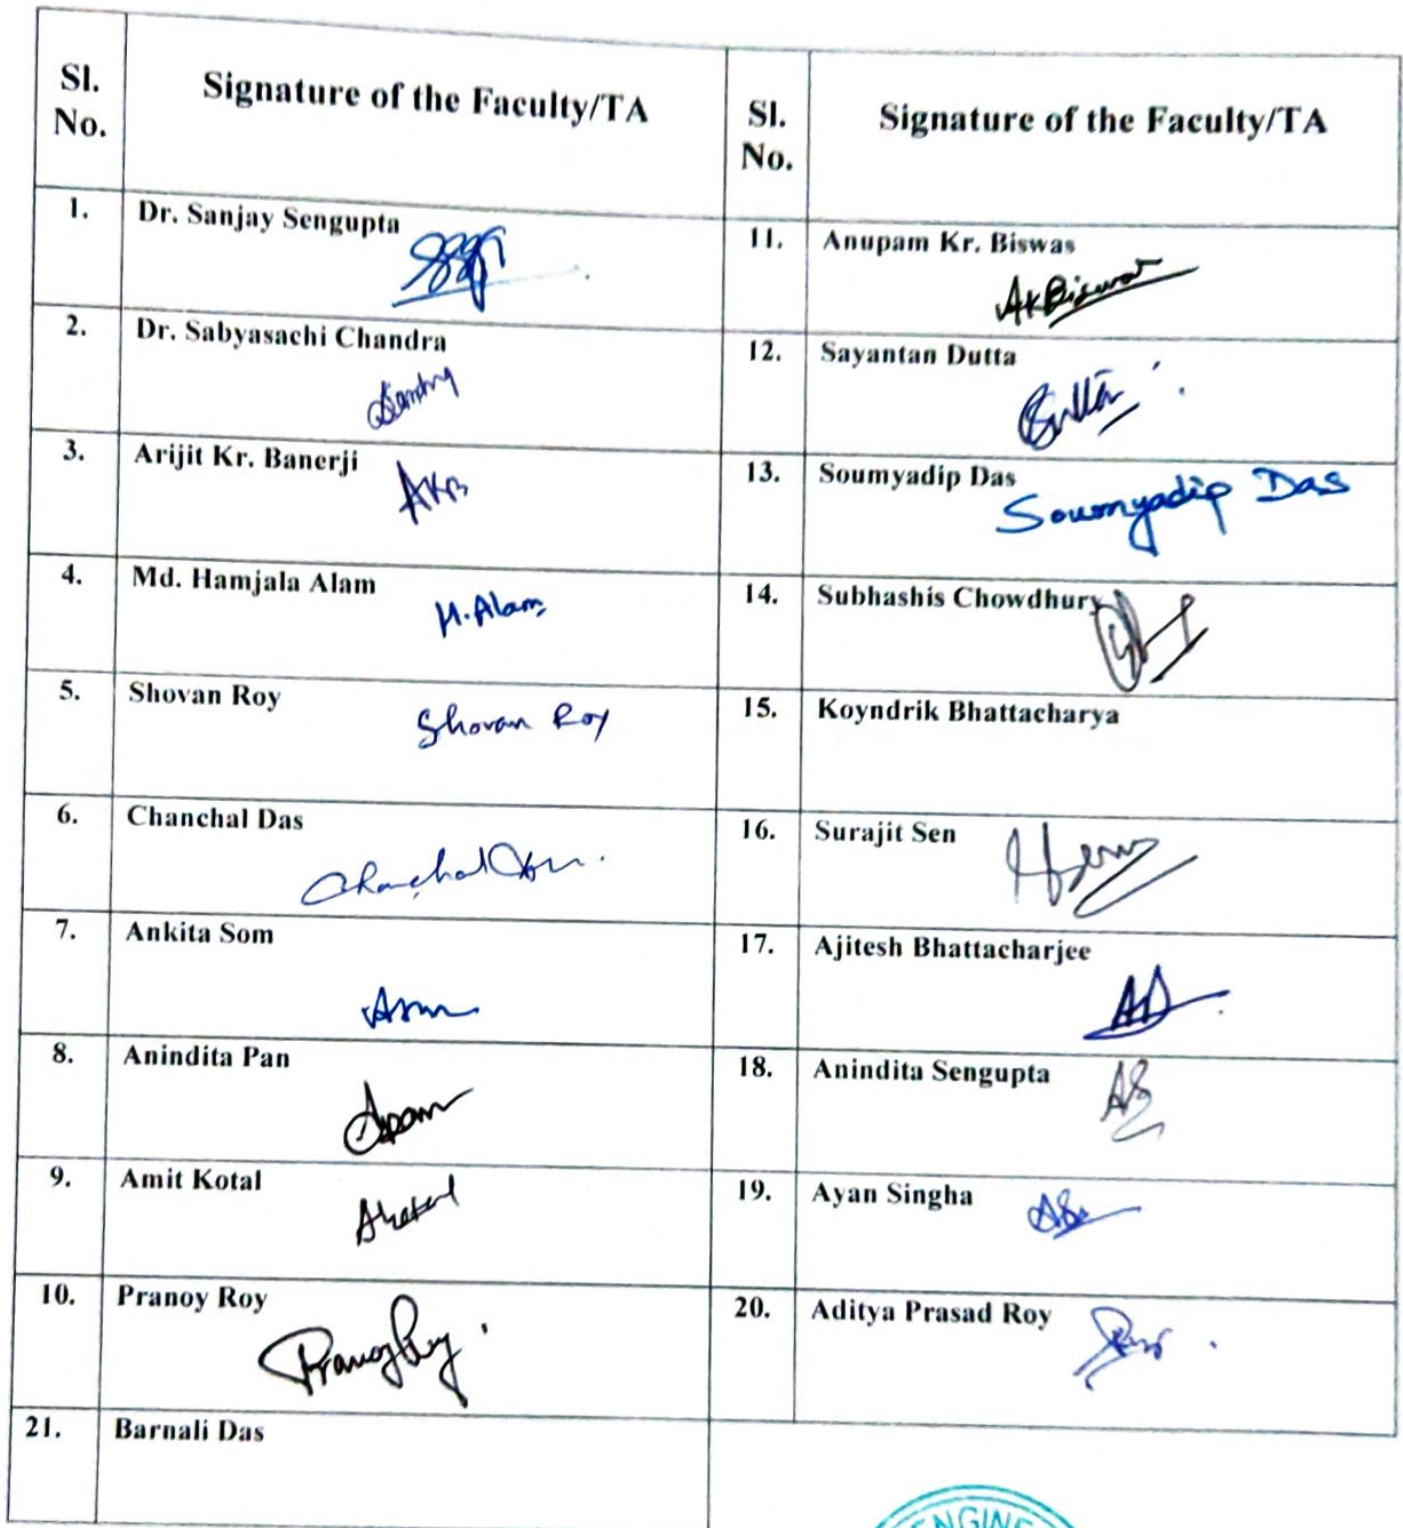 Sl. No.
Signature of the Faculty/TA
Sl. No.
Signature of the Faculty/TA
1.
Dr. Sanjay Sengupta
11.
Anupam Kr. Biswas
AKBiswas
2.
Dr. Sabyasachi Chandra
12.
Sayantan Dutta
3.
Arijit Kr. Banerji
AKB
13.
Soumyadip Das
Soumyadip Das
4.
Md. Hamjala Alam
M.Alam
14.
Subhashis Chowdhury
5.
Shovan Roy
Shovan Roy
15.
Koyndrik Bhattacharya
6.
Chanchal Das
Chanchal Das
16.
Surajit Sen
7.
Ankita Som
17.
Ajitesh Bhattacharjee
8.
Anindita Pan
18.
Anindita Sengupta
AS
9.
Amit Kotal
19.
Ayan Singha
10.
Pranoy Roy
Pranoy Roy
20.
Aditya Prasad Roy
21.
Barnali Das